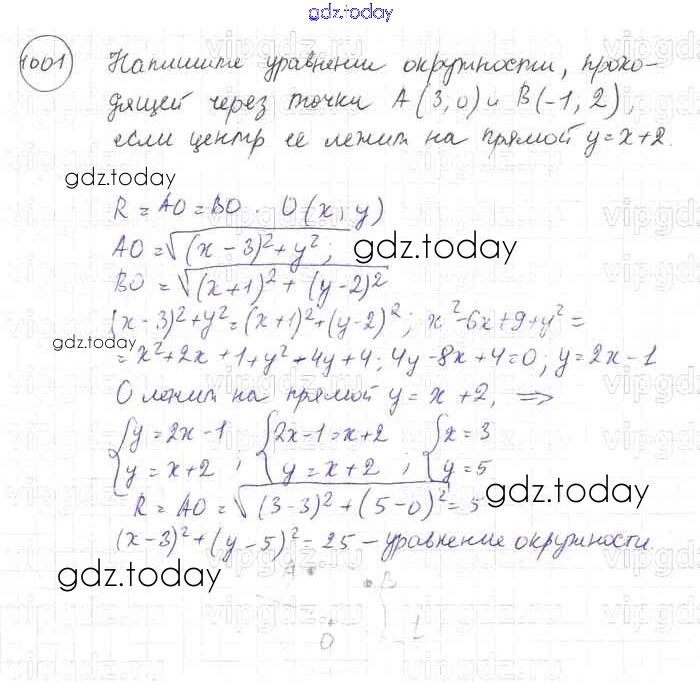 gdz.today
1001 Напишите уравнение окружности, прохо-
дящей через точки A(3;0) и B(-1;2),
если центр ее лежит на прямой y=x+2.
gdz.today
R = AO = BO. O(x; y)
AO = √((x-3)²+y²);
gdz.today
BO = √((x+1)²+(y-2)²)
(x-3)²+y²=(x+1)²+(y-2)²; x²-6x+9+y²=
gdz.today
=x²+2x+1+y²-4y+4; 4y-8x+4=0; y=2x-1
O лежит на прямой y=x+2, ⇒
{y=2x-1 {2x-1=x+2 {x=3
{y=x+2 ; {y=x+2 ; {y=5
gdz.today
R = AO = √((3-3)²+(5-0)²)=5
(x-3)²+(y-5)²=25 – уравнение окружности.
gdz.today